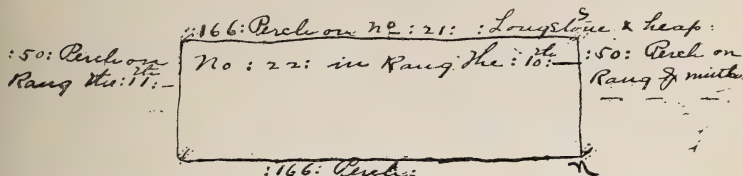 S
:166: Perch on No : 21: : Longstone & heap:
:50: Perch on
Rang the: 11:-
No : 22: in Rang the : 10th:
:50: Perch on
Rang
:166: Perch:
n